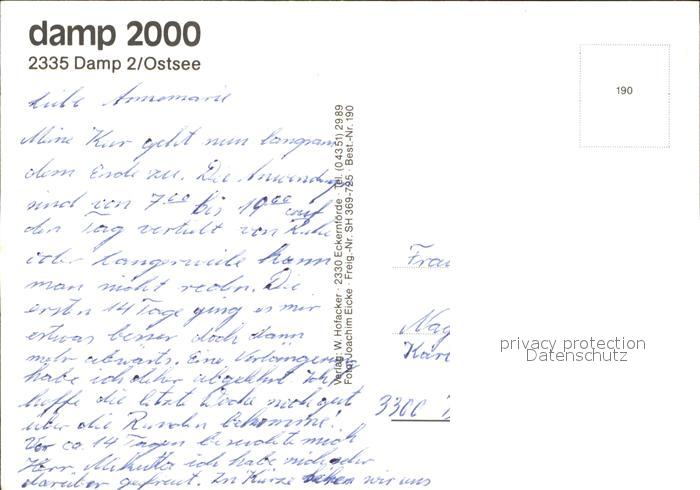 damp 2000
2335 Damp 2/Ostsee
190
Liebe Annemarie
Meine Kur geht nun langsam
dem Ende zu. Die Anwendung
sind von 7.00 bis 19.00 auf
den Tag verteilt von Ruhe
oder Langerweile kann
man nicht reden. Die
ersten 14 Tage ging es mir
etwas besser doch dann
mehr abwärts. Eine Verlängerung
habe ich daher abgelehnt. Ich
hoffe die letzte Woche noch gut
über die Runden bekomme!
Vor ca. 14 Tagen besuchte mich
Herr ich habe mich sehr
darüber gefreut. In Kürze sehen wir uns
Verlag: W. Hofacker · 2330 Eckernförde · Tel. (0 43 51) 29 89
Foto: Joachim Eicke · Freig.-Nr. SH 369-725 · Best.-Nr. 190
Frau
Nag
3300
privacy protection
Datenschutz